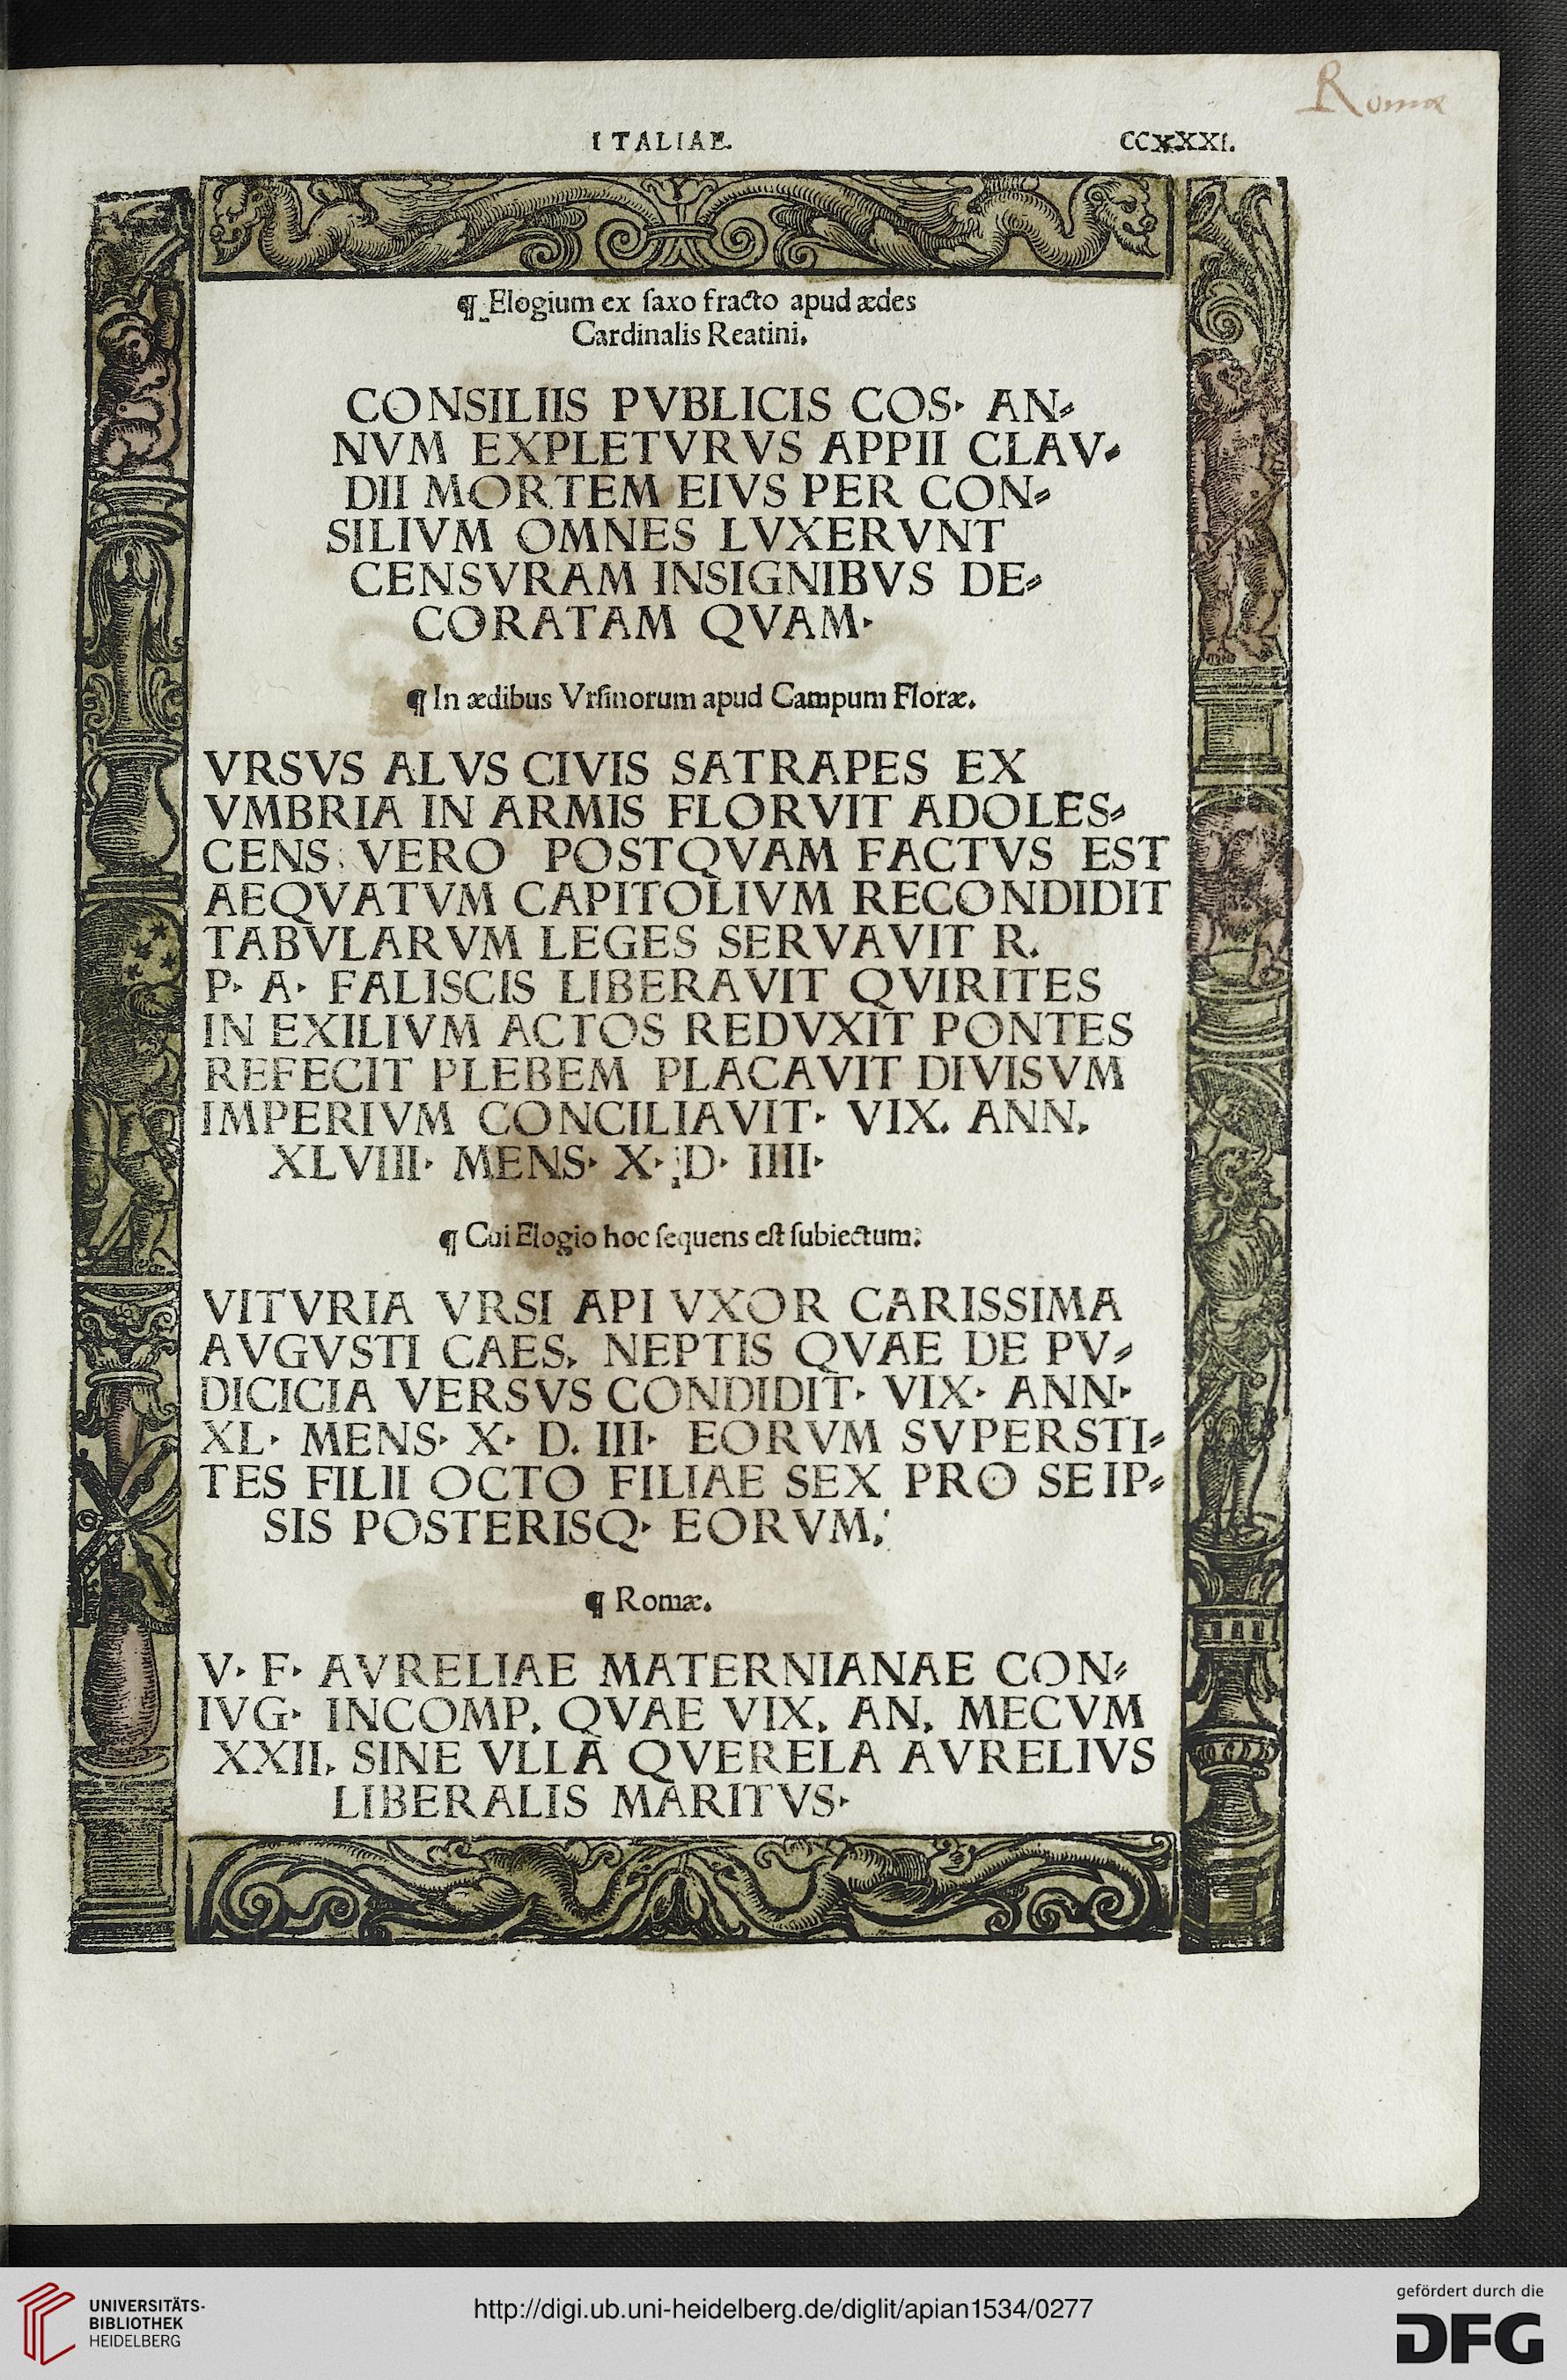 Romæ
ITALIAE. CCXXXI.
¶ Elogium ex ſaxo fracto apud ædes
Cardinalis Reatini.
CONSILIIS PVBLICIS COS· AN⸗
NVM EXPLETVRVS APPII CLAV⸗
DII MORTEM EIVS PER CON⸗
SILIVM OMNES LVXERVNT
CENSVRAM INSIGNIBVS DE⸗
CORATAM QVAM·
¶ In ædibus Vrſinorum apud Campum Floræ.
VRSVS ALVS CIVIS SATRAPES EX
VMBRIA IN ARMIS FLORVIT ADOLES⸗
CENS: VERO POSTQVAM FACTVS EST
AEQVATVM CAPITOLIVM RECONDIDIT
TABVLARVM LEGES SERVAVIT R.
P· A· FALISCIS LIBERAVIT QVIRITES
IN EXILIVM ACTOS REDVXIT PONTES
REFECIT PLEBEM PLACAVIT DIVISVM
IMPERIVM CONCILIAVIT· VIX. ANN.
XLVIII· MENS· X· D· IIII·
¶ Cui Elogio hoc ſequens eſt ſubiectum:
VITVRIA VRSI API VXOR CARISSIMA
AVGVSTI CAES. NEPTIS QVAE DE PV⸗
DICICIA VERSVS CONDIDIT· VIX· ANN·
XL· MENS· X· D. III· EORVM SVPERSTI⸗
TES FILII OCTO FILIAE SEX PRO SEIP⸗
SIS POSTERISQ· EORVM.
¶ Romæ.
V· F· AVRELIAE MATERNIANAE CON⸗
IVG· INCOMP. QVAE VIX. AN. MECVM
XXII. SINE VLLA QVERELA AVRELIVS
LIBERALIS MARITVS·
UNIVERSITÄTS-
BIBLIOTHEK
HEIDELBERG
http://digi.ub.uni-heidelberg.de/diglit/apian1534/0277
gefördert durch die
DFG